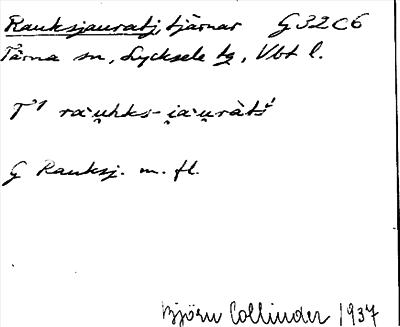 Rauksjauratj, tjärnar G32C6
Tärna sn, Lycksele tg, Vbt l.
T¹ ra·u̯hks-i̯a·u̯ràts´
G Rauksj. m. fl.
Björn Collinder 1937